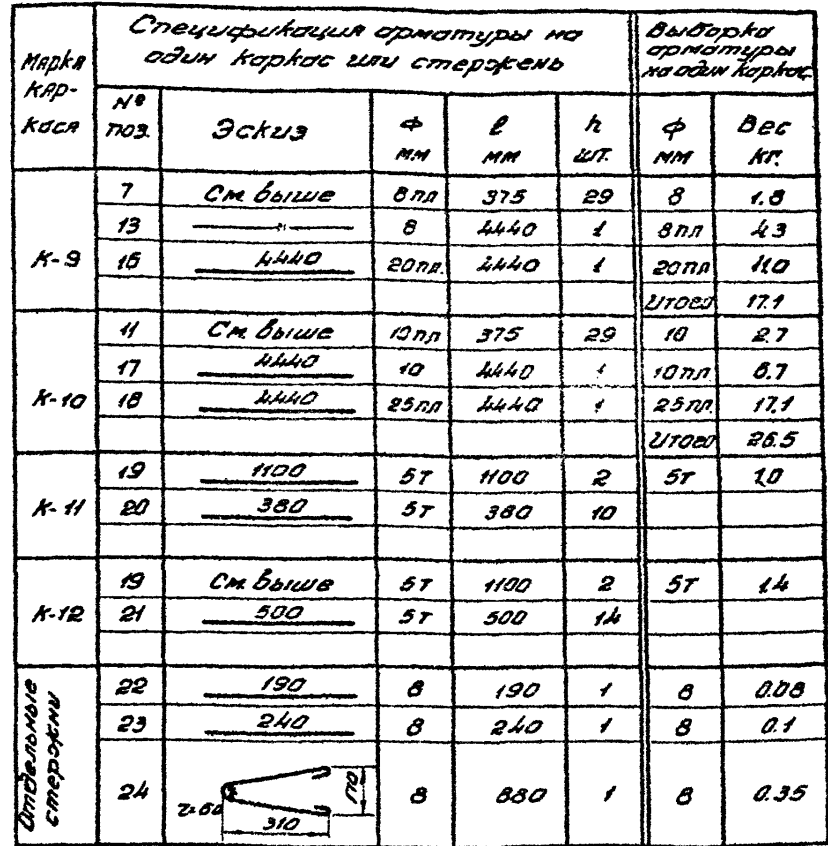 Марка кар-каса
Спецификация арматуры на один каркас или стержень
Выборка арматуры на один каркас
№ поз. Эскиз ф мм l мм n шт. ф мм Вес кг.
К-9
7 См. выше 8пл 375 29 8 1.8
13 —〃— 8 4440 1 8пл 4.3
16 4440 20пл. 4440 1 20пл 11.0
Итого 17.1
К-10
11 См. выше 10пл 375 29 10 2.7
17 4440 10 4440 1 10пл 6.7
18 4440 25пл 4440 1 25пл 17.1
Итого 26.5
К-11
19 1100 5т 1100 2 5т 1,0
20 380 5т 380 10
К-12
19 См. выше 5т 1100 2 5т 1.4
21 500 5т 500 14
Отдельные стержни
22 190 8 190 1 8 0.08
23 240 8 240 1 8 0.1
24 r=60 310 170 8 880 1 8 0.35